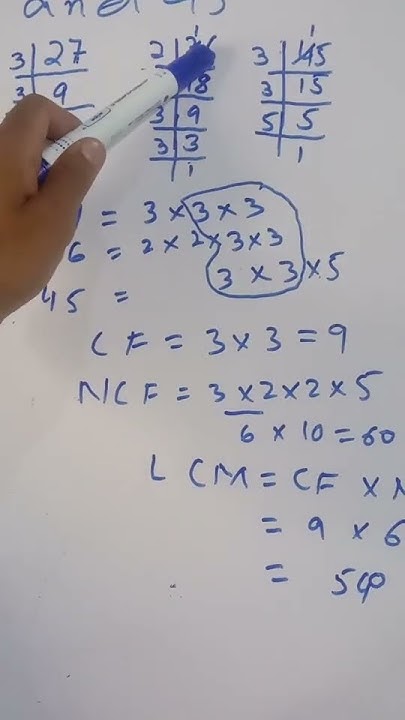 and 45
3 27 2 3 45
3 9 18 3 15
3 9 5 5
3 3 1
1
= 3 x 3 x 3
6 = 2 x 2 x 3 x 3
3 x 3 x 5
45 =
CF = 3 x 3 = 9
NCF = 3 x 2 x 2 x 5
6 x 10 = 60
LCM = CF x N
= 9 x 6
= 540